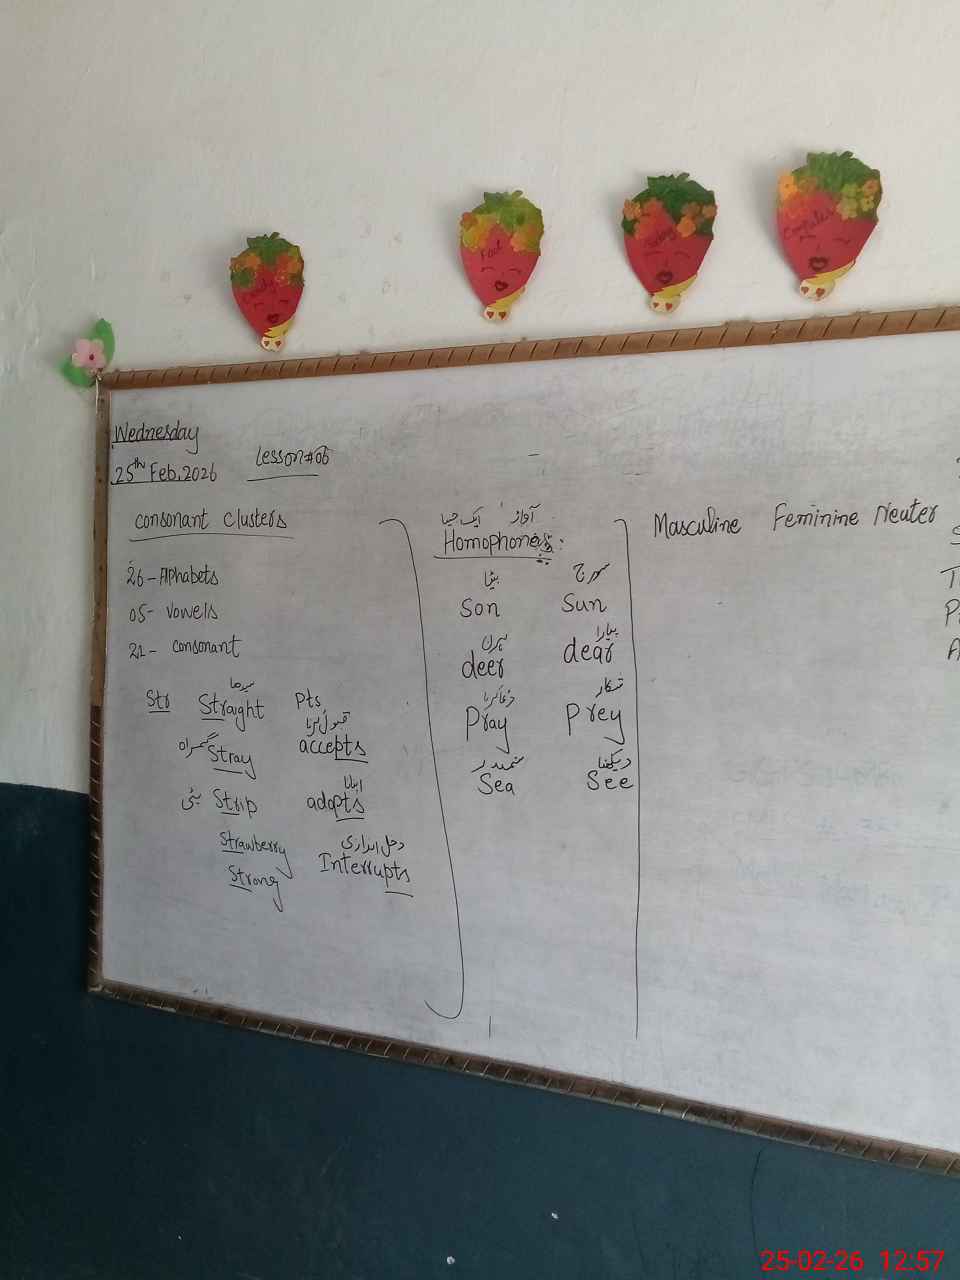 Candy
Foot
Baby
Computer
Wednesday
25th Feb, 2026
Lesson#06
Consonant Clusters
26 - Alphabets
05 - Vowels
21 - Consonant
Str
سیدھا
Straight
گمراہ Stray
پٹی Strip
Strawberry
Strong
Pts
قبول کرنا
accepts
اپنانا
adopts
دخل اندازی
Interrupts
ایک جیسا آواز
Homophones:
بیٹا سورج
Son Sun
ہرن پیارا
deer dear
دعا کرنا شکار
Pray Prey
سمندر دیکھنا
Sea See
Masculine Feminine Neuter
25-02-26 12:57